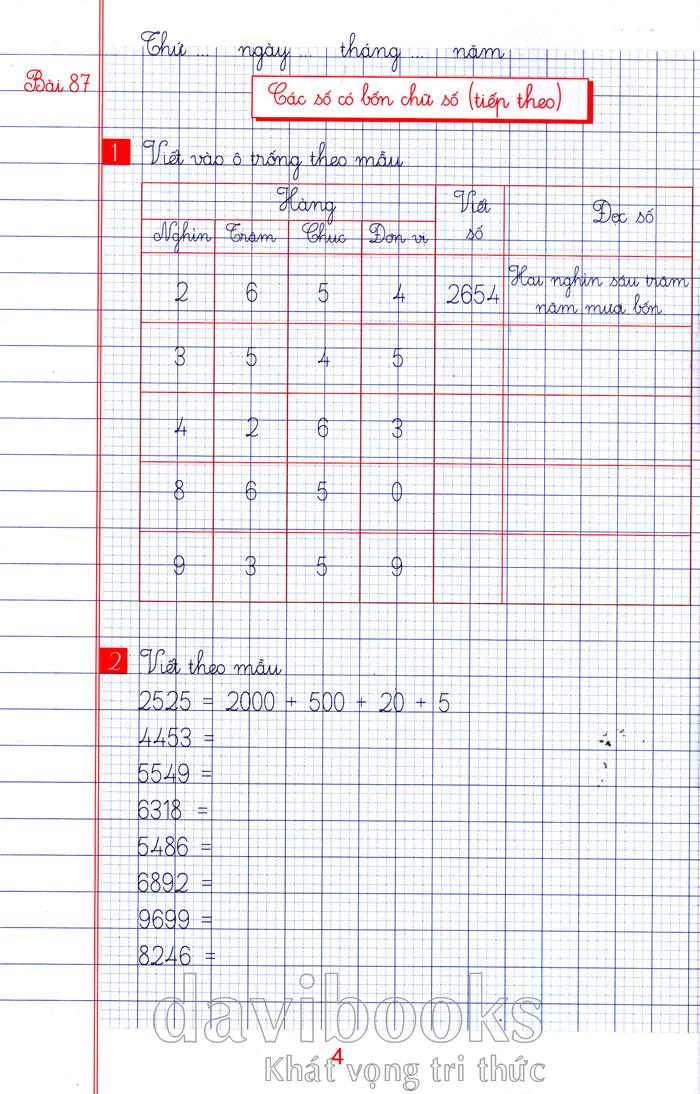 Thứ ... ngày ... tháng ... năm
Bài 87
Các số có bốn chữ số (tiếp theo)
1 Viết vào ô trống theo mẫu
Hàng Viết số Đọc số
Nghìn Trăm Chục Đơn vị
2 6 5 4 2654 Hai nghìn sáu trăm
năm mươi bốn
3 5 4 5
4 2 6 3
8 6 5 0
9 3 5 9
2 Viết theo mẫu
2525 = 2000 + 500 + 20 + 5
4453 =
5549 =
6318 =
5486 =
6892 =
9699 =
8246 =
davibooks
4
Khát vọng tri thức